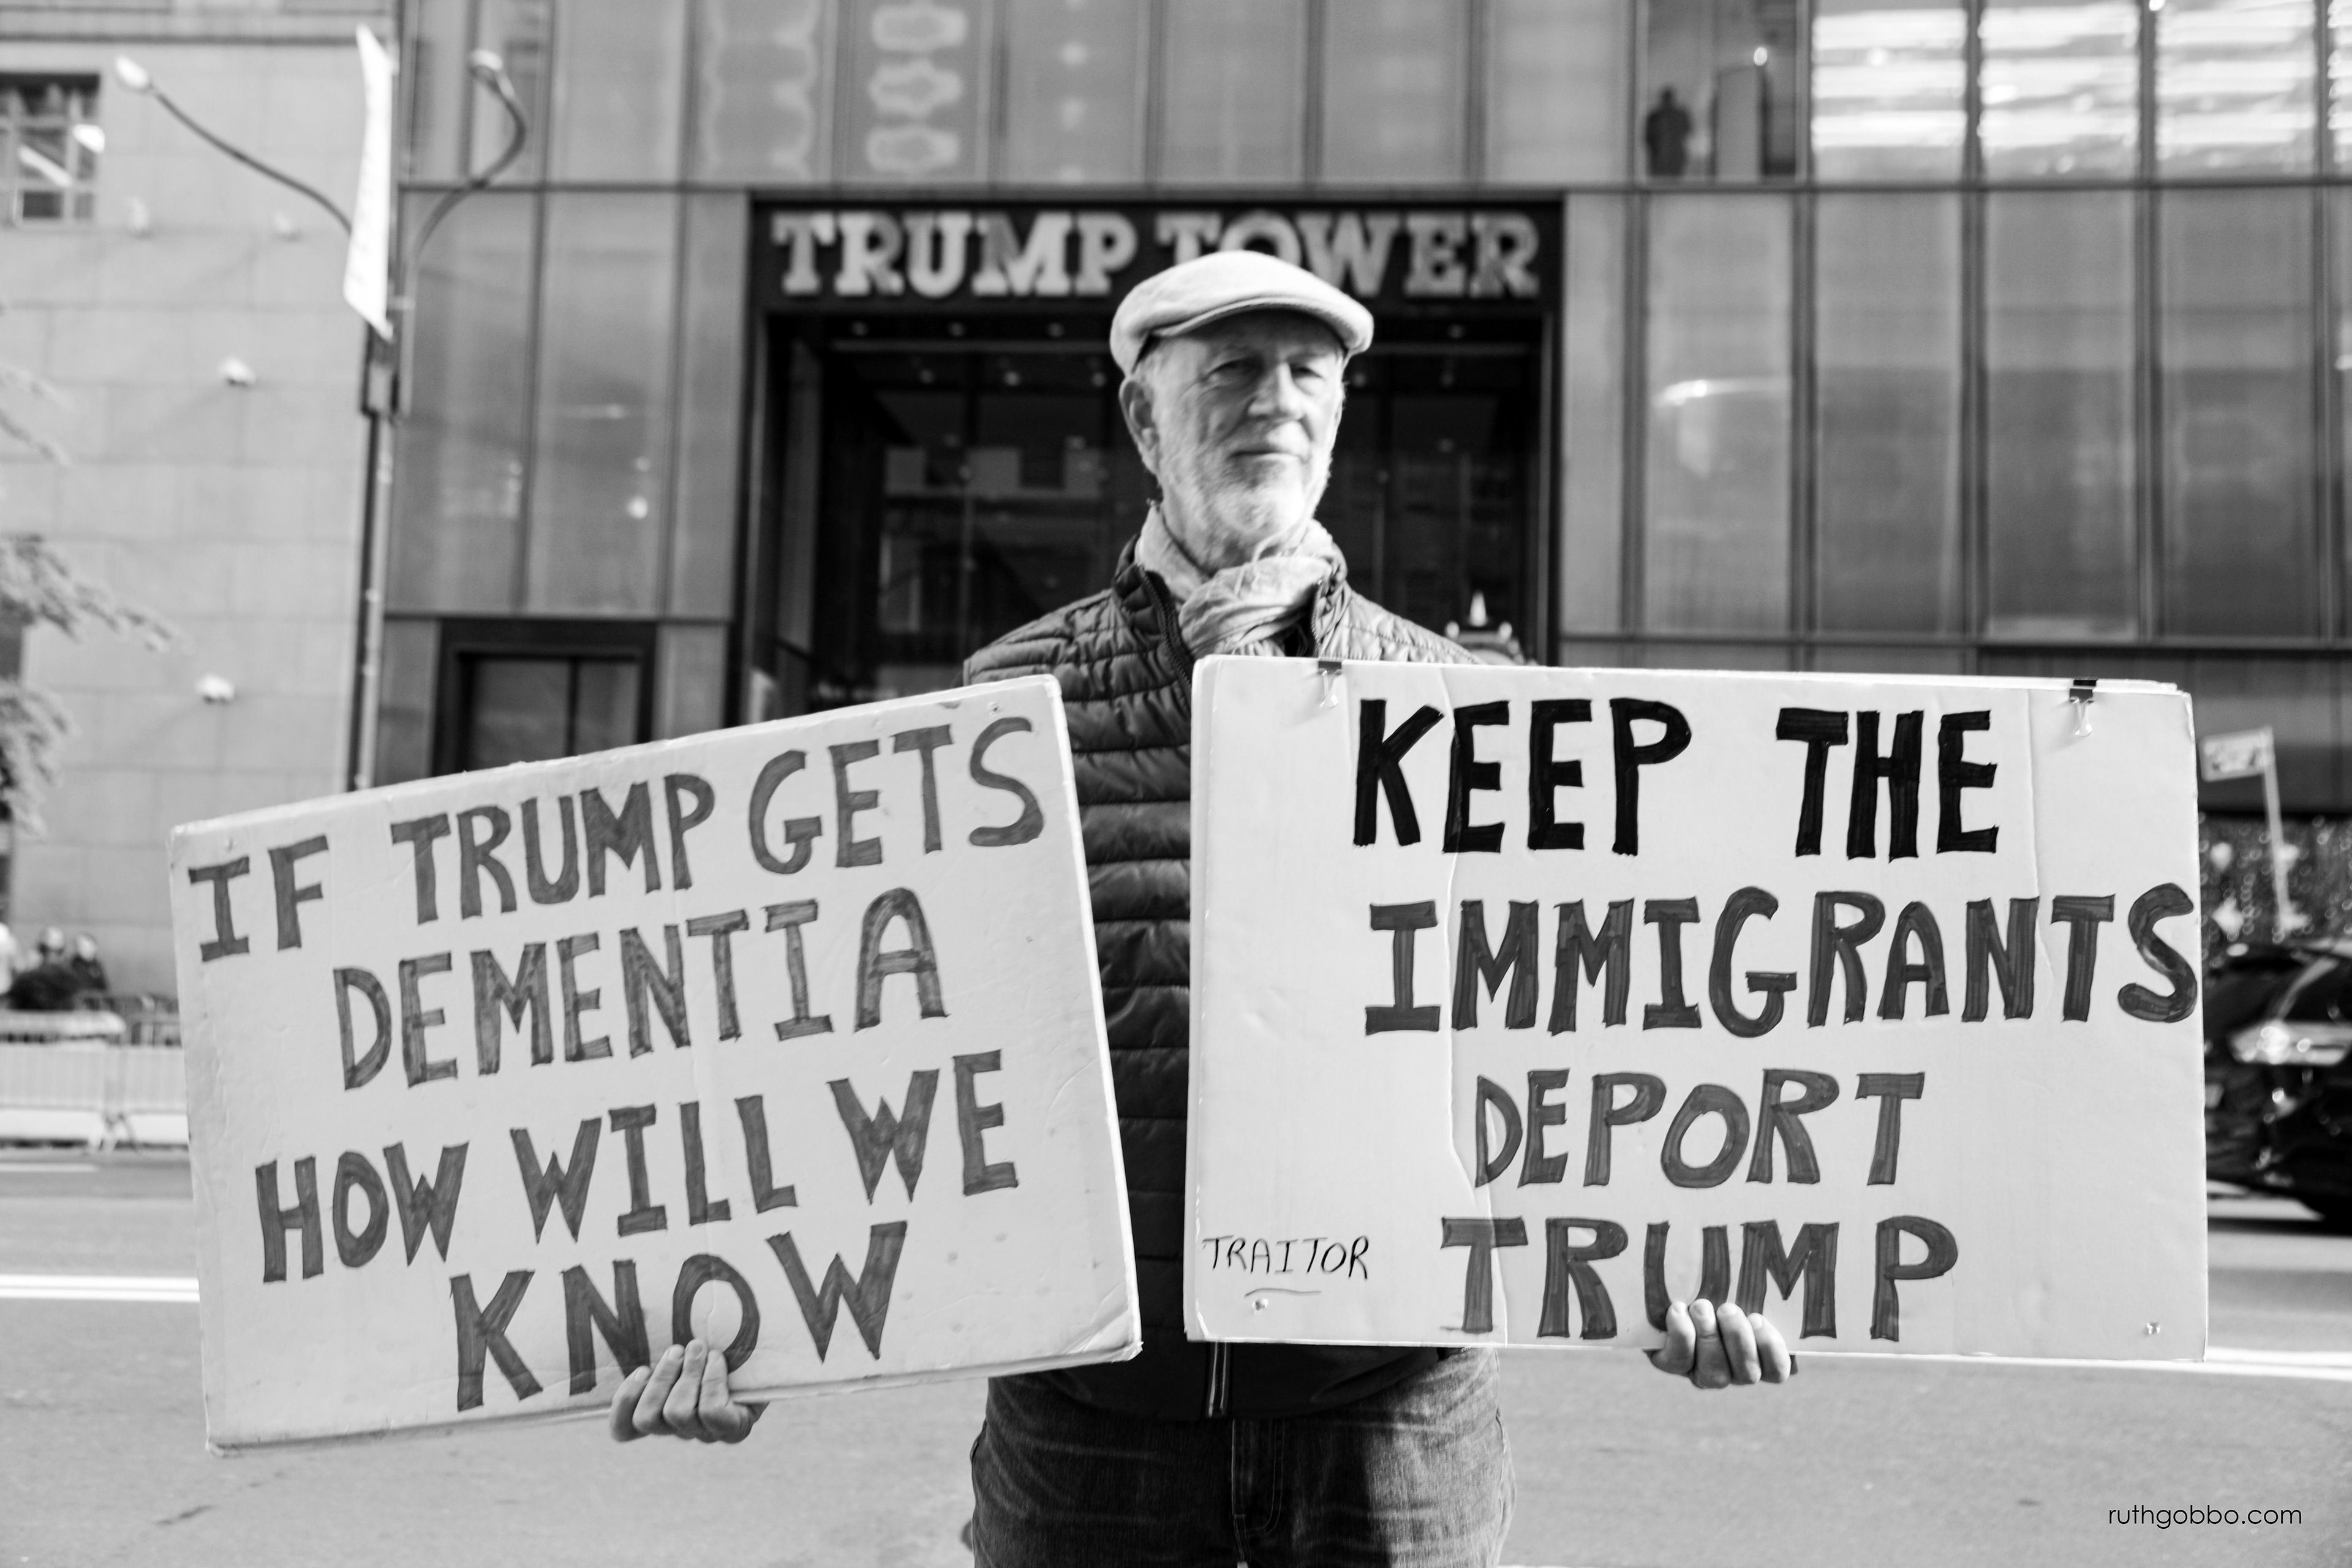 TRUMP TOWER
IF TRUMP GETS
DEMENTIA
HOW WILL WE
KNOW
KEEP THE
IMMIGRANTS
DEPORT
TRAITOR TRUMP
ruthgobbo.com